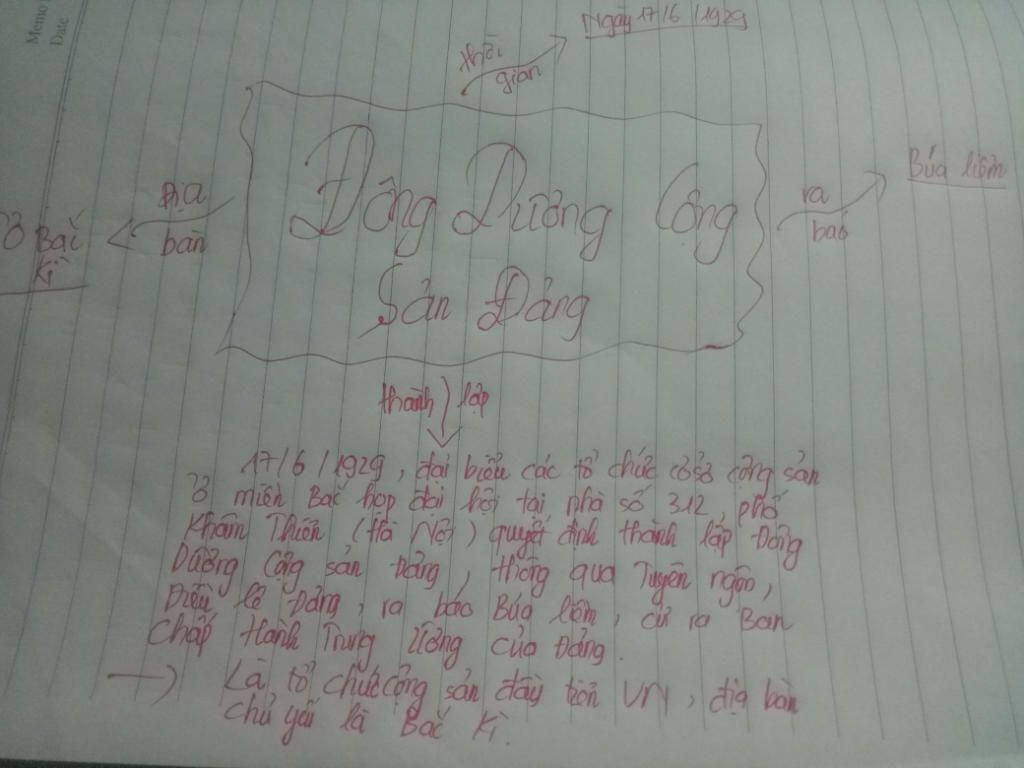 Memo
Date
Ngày 17/6/1929
thời
gian
Búa liềm
ra
báo
Địa
bàn
Ở Bắc
Kì
Đông Dương Cộng
Sản Đảng
thành lập
17/6/1929, đại biểu các tổ chức cơ sở cộng sản
ở miền Bắc họp đại hội tại nhà số 312, phố
Khâm Thiên (Hà Nội) quyết định thành lập Đông
Dương Cộng sản Đảng, thông qua Tuyên ngôn,
Điều lệ Đảng, ra báo Búa liềm, cử ra Ban
Chấp Hành Trung Ương của Đảng.
→ Là tổ chức cộng sản đầu tiên VN, địa bàn
chủ yếu là Bắc Kì.